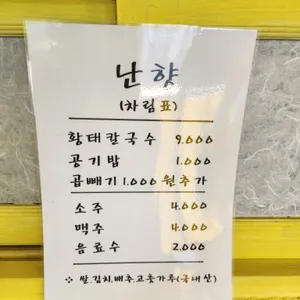 난향
(차림표)
황태칼국수 9.000
공기밥 1.000
곱빼기 1.000 원추가
소주 4.000
맥주 4.000
음료수 2.000
※ 쌀.김치.배추.고춧가루(국내산)